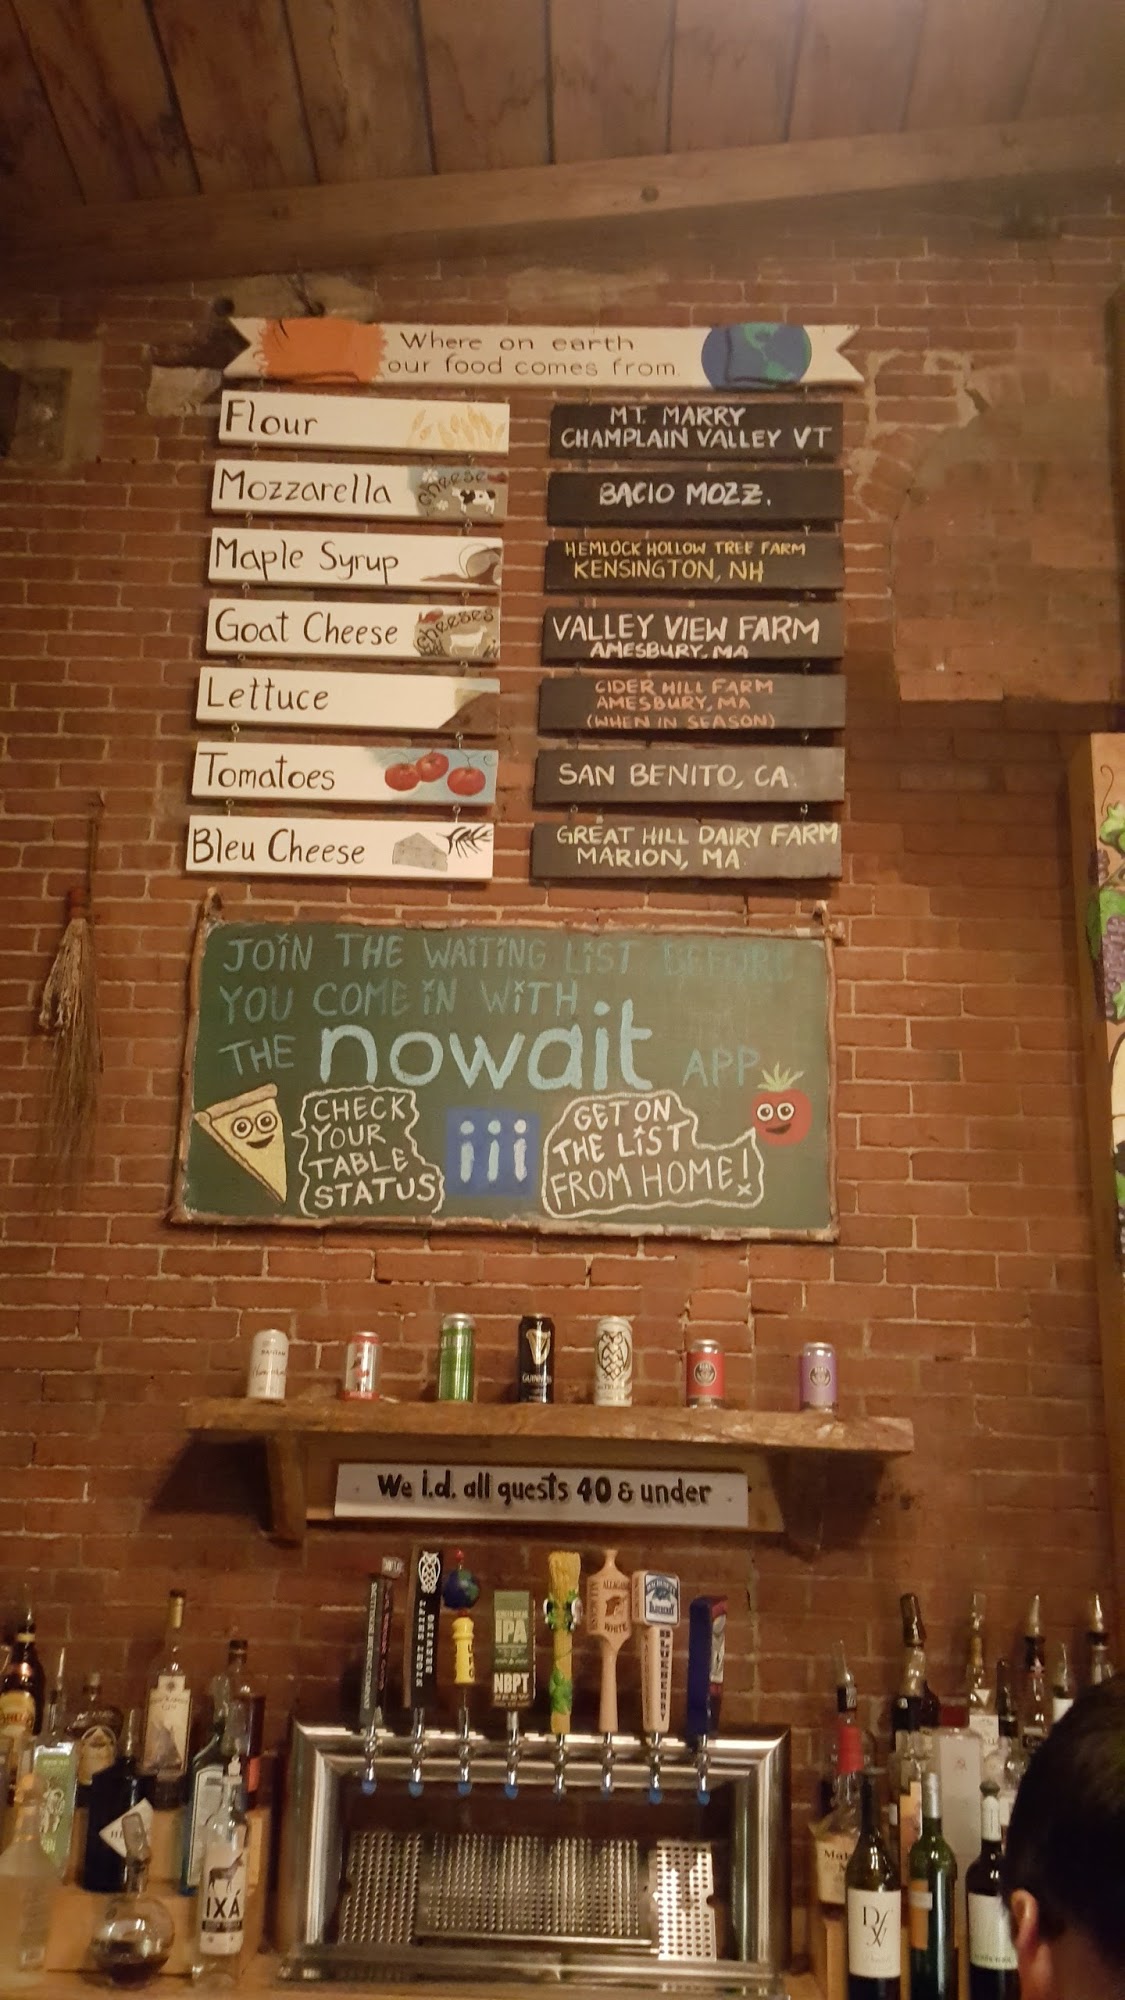 Where on earth
our food comes from.
Flour
MT. MARRY
CHAMPLAIN VALLEY VT
Mozzarella
cheese
BACIO MOZZ.
Maple Syrup
HEMLOCK HOLLOW TREE FARM
KENSINGTON, NH
Goat Cheese
cheeses
VALLEY VIEW FARM
AMESBURY, MA
Lettuce
CIDER HILL FARM
AMESBURY, MA
(WHEN IN SEASON)
Tomatoes
SAN BENITO, CA.
Bleu Cheese
GREAT HILL DAIRY FARM
MARION, MA
JOIN THE WAITING LIST BEFORE
YOU COME IN WITH
THE nowait APP
CHECK
YOUR
TABLE
STATUS
iii
GET ON
THE LIST
FROM HOME!
GUINNESS
We i.d. all guests 40 & under
IPA
NBPT
ALLAGASH
WHITE
BLUEBERRY
IXÁ